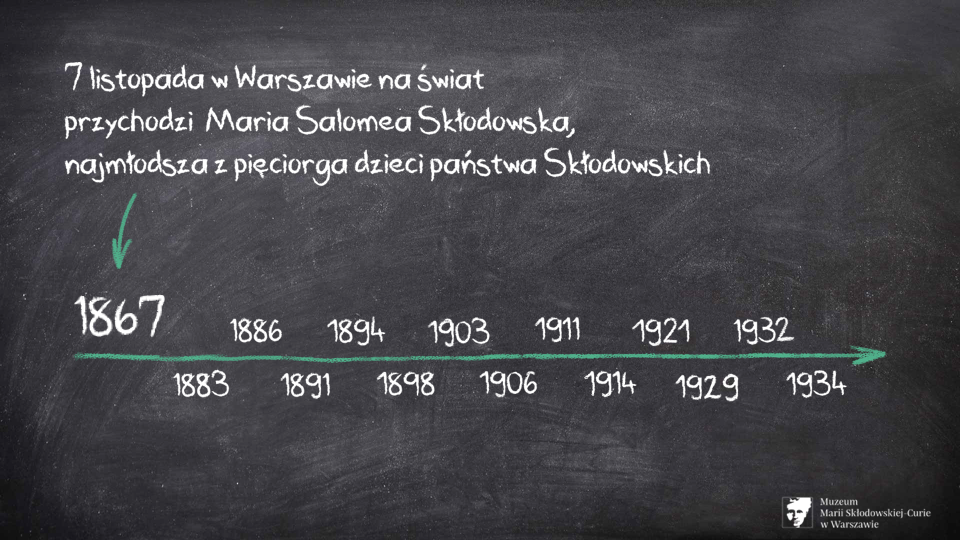 7 listopada w Warszawie na świat
przychodzi Maria Salomea Skłodowska,
najmłodsza z pięciorga dzieci państwa Skłodowskich
1867
1886 1894 1903 1911 1921 1932
1883 1891 1898 1906 1914 1929 1934
Muzeum
Marii Skłodowskiej-Curie
w Warszawie